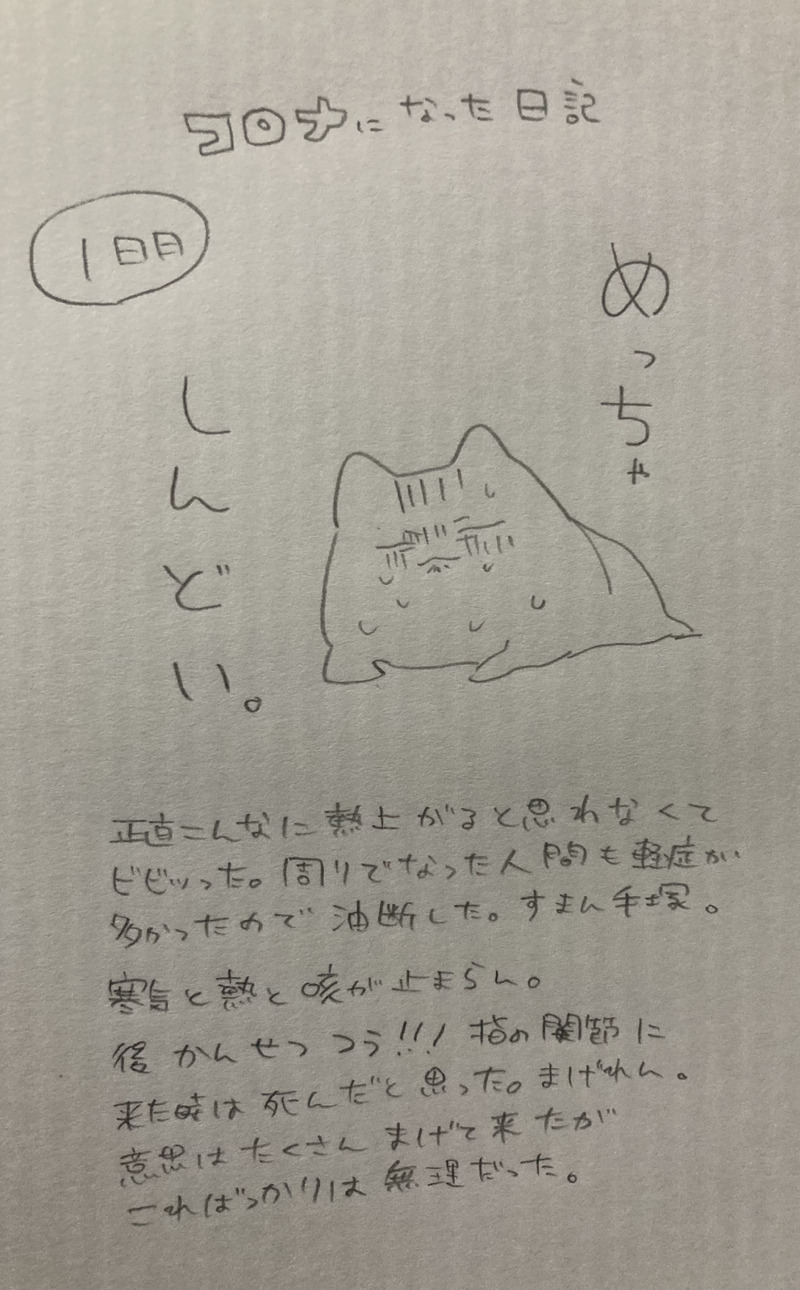 コロナになった日記
1日目
めっちゃ
しんどい。
正直こんなに熱上がると思れなくて
ビビッった。周りでなった人間も軽症が
多かったので油断した。すまん手塚。
寒気と熱と咳が止まらん。
後かんせつつう!!!指の関節に
来た時は死んだと思った。まげれん。
意思はたくさんまげて来たが
こればっかりは無理だった。